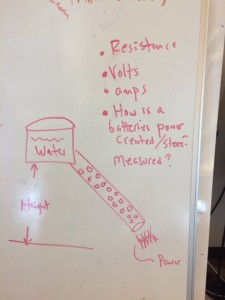 • Resistance
• Volts
• amps
• How is a
batteries power
created/store?
Measured?
Water
Height
Power